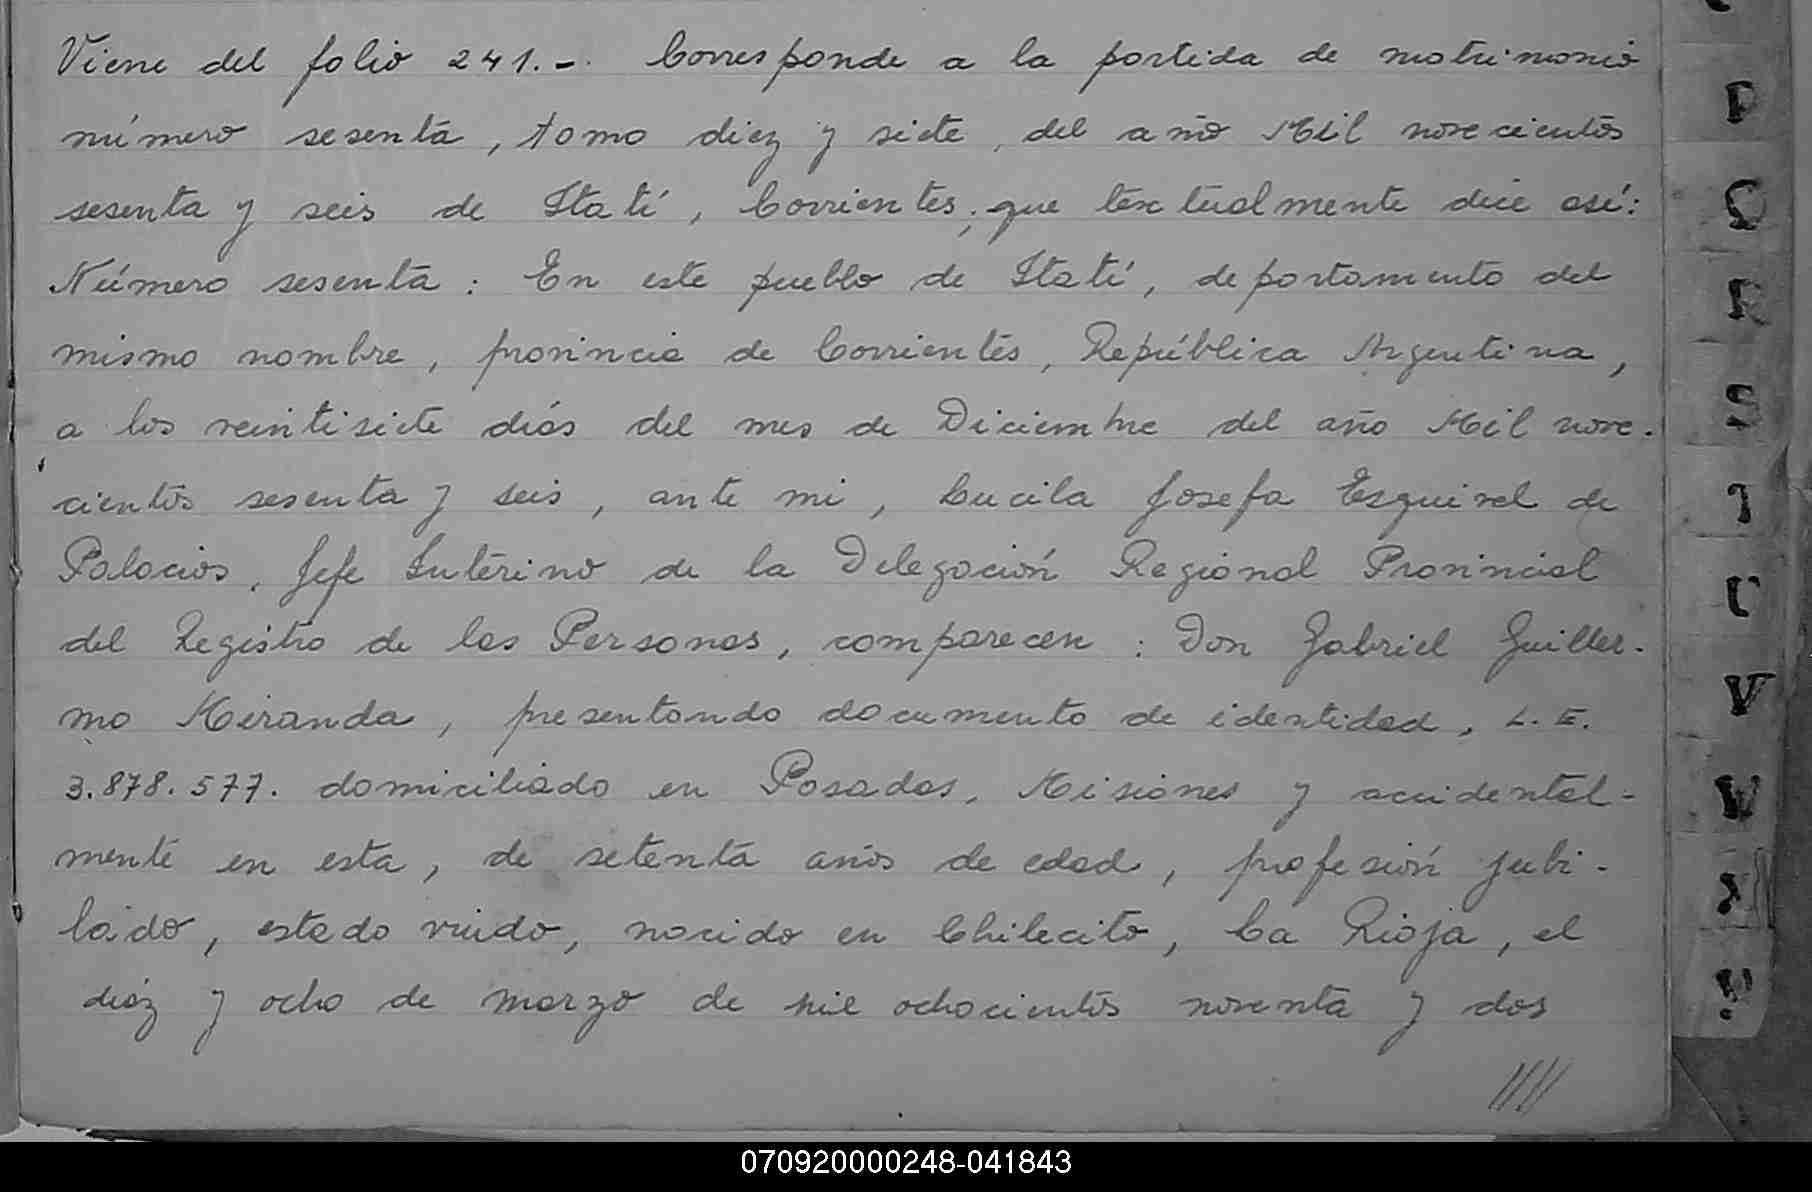 Viene del folio 241.-. Corresponde a la partida de matrimonio
número sesenta, tomo diez y siete, del año Mil novecientos
sesenta y seis de Itatí, Corrientes, que textualmente dice así:
Número sesenta: En este pueblo de Itatí, departamento del
mismo nombre, provincia de Corrientes, República Argentina,
a los veintisiete días del mes de Diciembre del año Mil nove-
cientos sesenta y seis, ante mi, Lucila Josefa Esquivel de
Palacios, Jefe Interino de la Delegación Regional Provincial
del Registro de las Personas, comparecen: Don Gabriel Guiller-
mo Miranda, presentando documento de identidad, L.E.
3.878.577. domiciliado en Posadas, Misiones y accidental-
mente en esta, de setenta años de edad, profesión jubi-
lado, estado viudo, nacido en Chilecito, La Rioja, el
diez y ocho de marzo de mil ochocientos noventa y dos
////
P
Q
R
S
T
U
V
W
X
Y
070920000248-041843